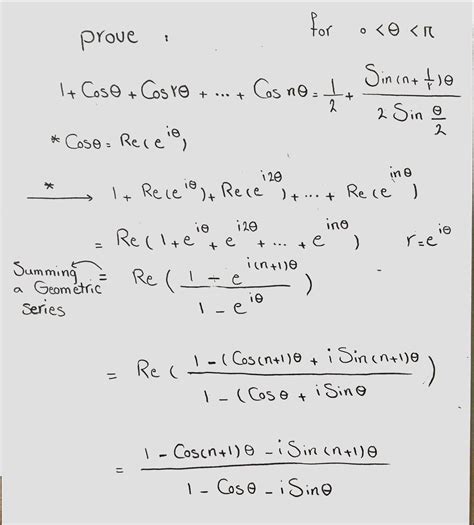 prove : for 0 < θ < π
1 + Cosθ + Cos2θ + ... + Cos nθ = 1/2 + Sin(n + 1/2)θ / 2 Sin θ/2
* Cosθ = Re(e^iθ)
* → 1 + Re(e^iθ) + Re(e^i2θ) + ... + Re(e^inθ)
= Re(1 + e^iθ + e^i2θ + ... + e^inθ) r = e^iθ
Summing a Geometric series = Re(1 - e^i(n+1)θ / 1 - e^iθ)
= Re(1 - (Cos(n+1)θ + i Sin(n+1)θ / 1 - (Cosθ + i Sinθ)
= 1 - Cos(n+1)θ - i Sin(n+1)θ / 1 - Cosθ - i Sinθ